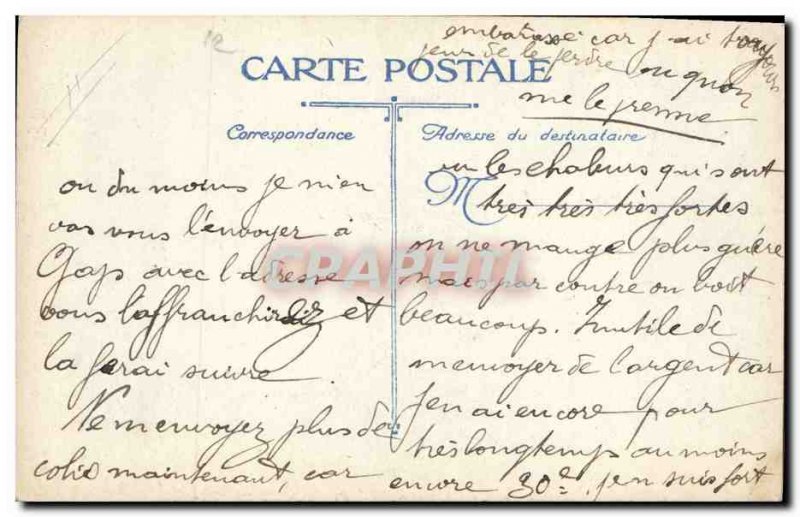 CARTE POSTALE
Correspondance
ou du moins je m'en
vas vous l'envoyer à
Gap avec l'adresse
vous l'affranchirez et
la ferai suivre
Ne m'envoyez plus de
colis maintenant, car
Adresse du destinataire
M
vu les chaleurs qui sont
très très très fortes
on ne mange plus guère
mais par contre on boit
beaucoup. Inutile de
m'envoyer de l'argent car
j'en ai encore pour
très longtemps au moins
encore 30d. j'en suis fort
embarassé car j'ai toujours
peur de le perdre ou qu'on
me le prenne
CPAPHIL
12